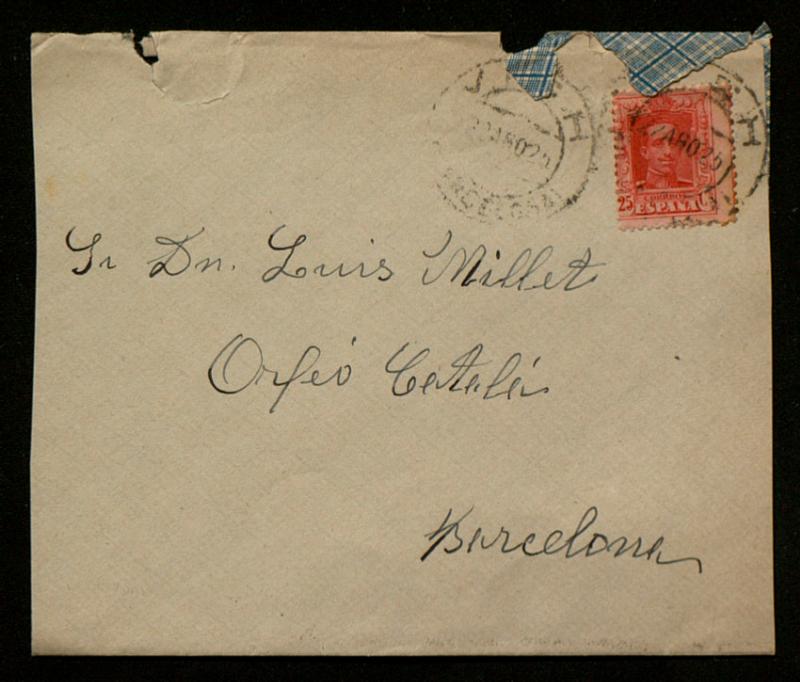 BARCELONA
CORREOS
25 ESPAÑA
Sr Dn. Luis Millet
Orfeó Català
Barcelona